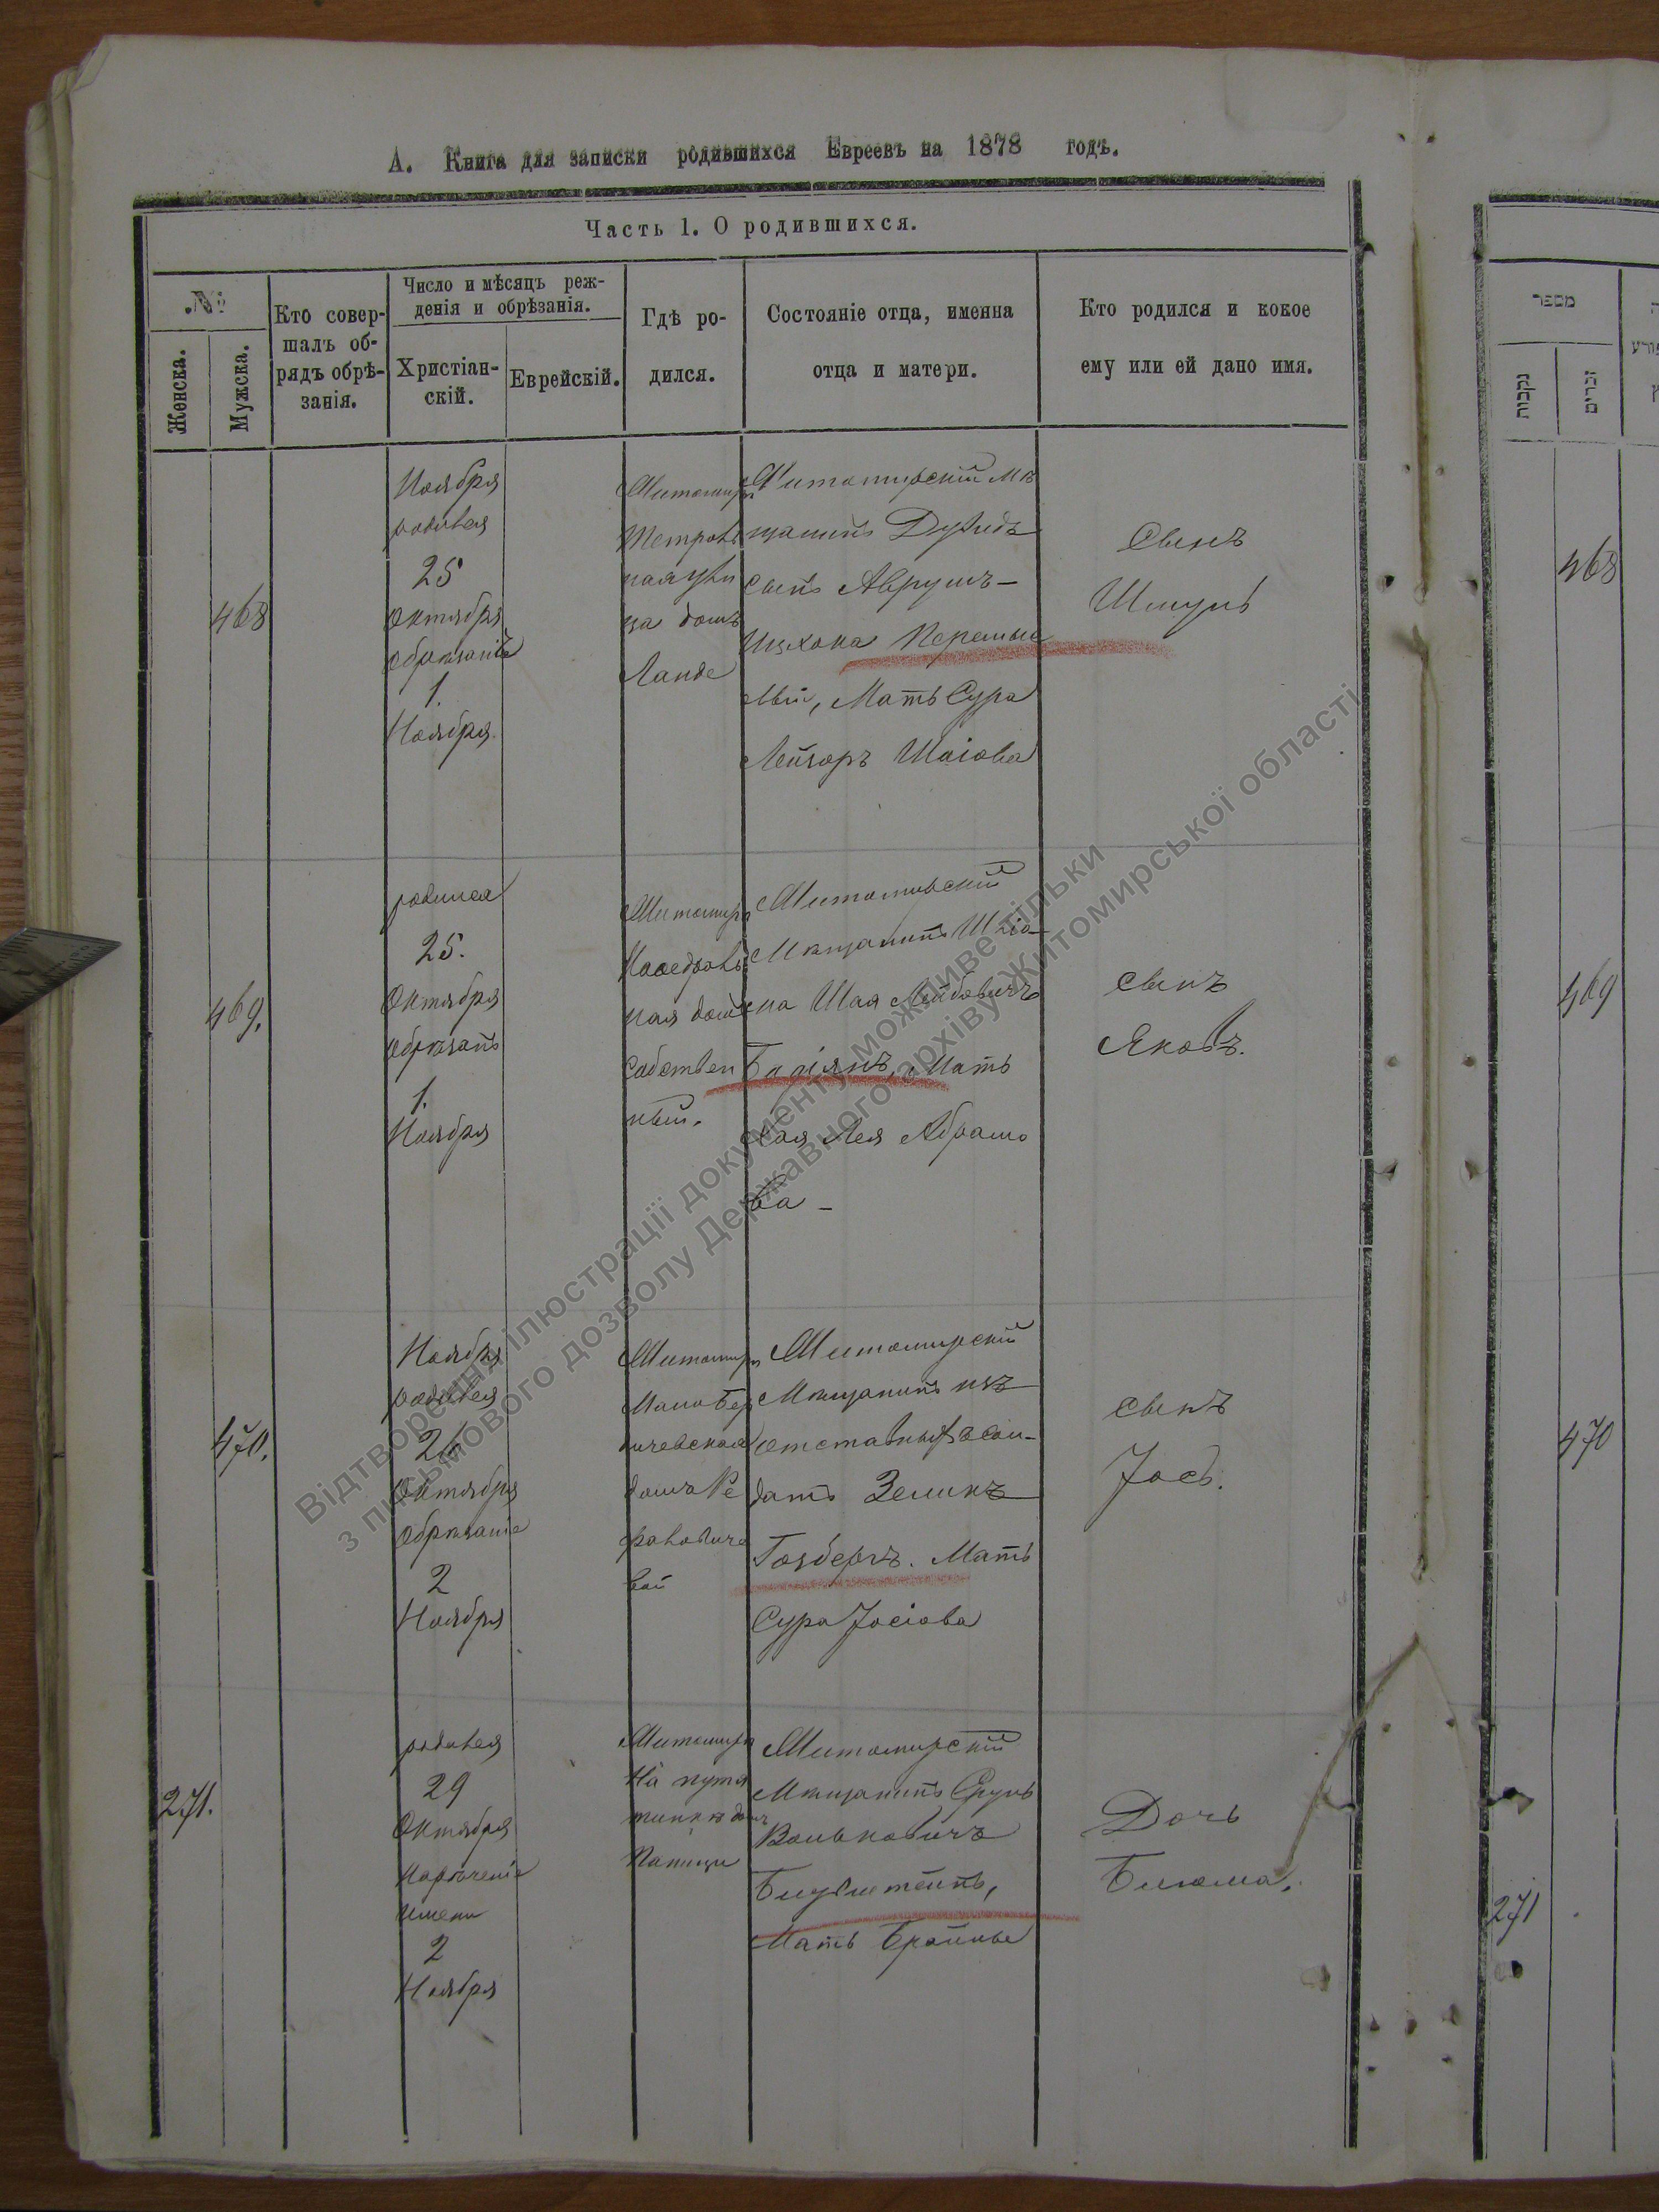 А. Книга для записки родившихся Евреевъ на 1878 годъ.
Часть 1. О родившихся.
№
Женска.
Мужска.
Кто совер-
шалъ об-
рядъ обрѣ-
занія.
Число и мѣсяцъ реж-
денія и обрѣзанія.
Христіан-
скій.
Еврейскій.
Гдѣ ро-
дился.
Состояніе отца, именна
отца и матери.
Кто родился и кокое
ему или ей дано имя.
468
Ноября
родився
25
Октября
Обрѣзаніе
1.
Ноября
Житомиръ
домъ
Ланде
Житомирскій мѣ
щанинъ Дувидъ
сынъ Аврумъ-
Ицхока
Мать Сура
Лейзоръ Шаіова
Сынъ
Шмуль
469.
родился
25.
Октября
Обрѣзанъ
1.
Ноября
Житомиръ
ная домъ
Собствен
ный.
Житомирскій
Мѣщанинъ
Шая Лейбовичъ
Мать
Лея Абрамо
ва -
сынъ
Яковъ.
470.
Ноября
родився
26
Октября
Обрѣзаніе
2
Ноября
Житомиръ
Мало Бер
дичевская
домъ
вой
Житомирскій
Мѣщанинъ изъ
отставныхъ сол-
датъ Зеликъ
Гозбергъ. Мать
Сура Іосіова
сынъ
Іось.
271.
родився
29
Октября
Нарѣченіе
имени
2
Ноября
Житомиръ
На путя
тинкѣ домъ
Житомирскій
Мѣщанинъ Сруль
Вольковичъ
Мать
Дочь
Блюма.
מספר
נקבות
זכרים
468
469
470
271
Відтворення ілюстрації документу можливе тільки
з письмового дозволу Державного архіву Житомирської області